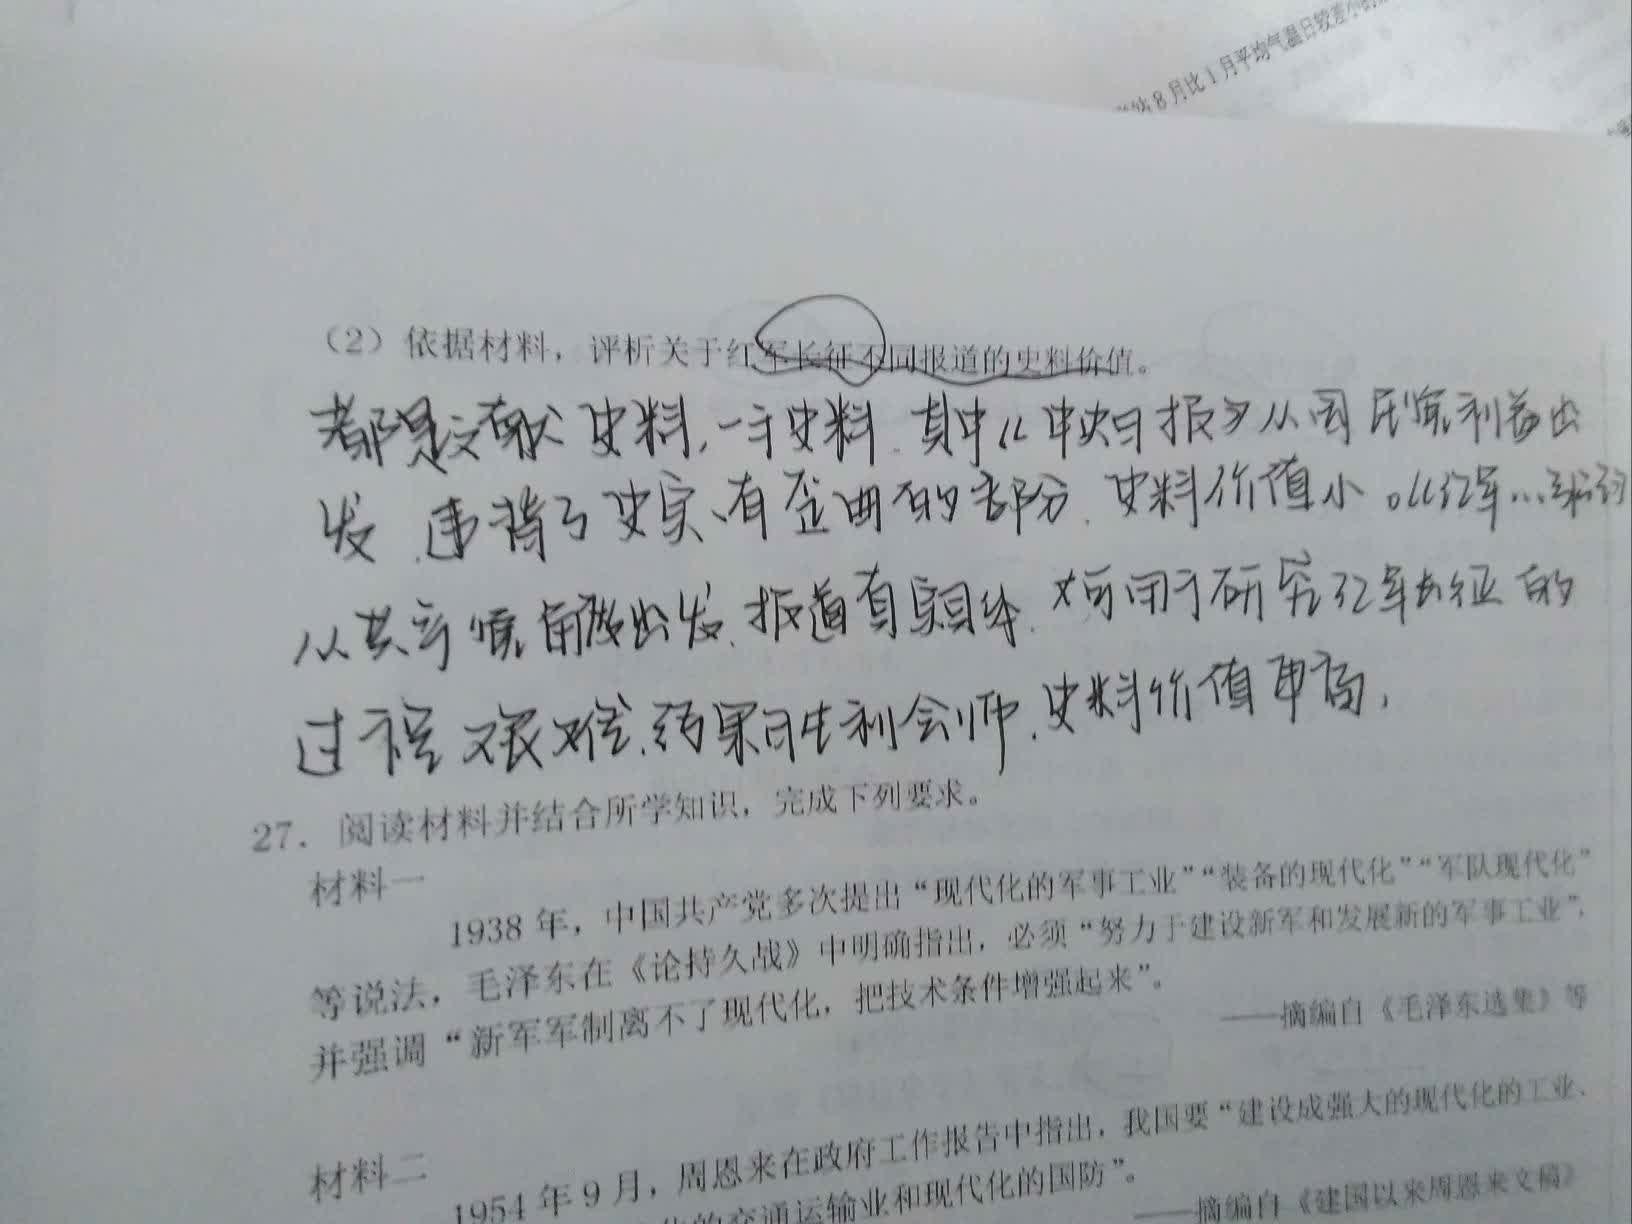 站8月比1月平均气温日较差小的
（2）依据材料，评析关于红军长征不同报道的史料价值。
都是文献史料,一手史料.其中《中央日报》从国民党利益出
发.违背了史实、有歪曲的部分.史料价值小。《红军…
从共产党角度出发.报道真实具体.对可用于研究红军长征的
过程艰难.结果胜利会师.史料价值更高.
27．阅读材料并结合所学知识，完成下列要求。
材料一
1938年，中国共产党多次提出“现代化的军事工业”“装备的现代化”“军队现代化”
等说法，毛泽东在《论持久战》中明确指出，必须“努力于建设新军和发展新的军事工业”，
并强调“新军军制离不了现代化，把技术条件增强起来”。
——摘编自《毛泽东选集》等
材料二
1954年9月，周恩来在政府工作报告中指出，我国要“建设成强大的现代化的工业、
的交通运输业和现代化的国防”。
——摘编自《建国以来周恩来文稿》